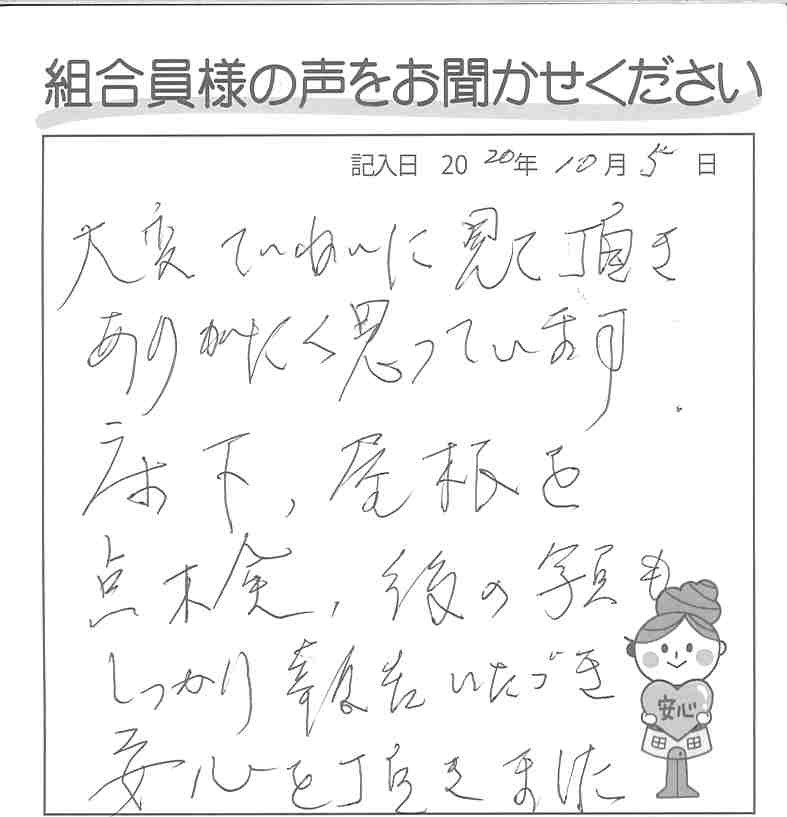 組合員様の声をお聞かせください
記入日 2020年 10月 5日
大変ていねいに見て頂き
ありがたく思っています.
床下, 屋根を
点検, 後の も
しっかり報告いただき
安心を頂きました
安心